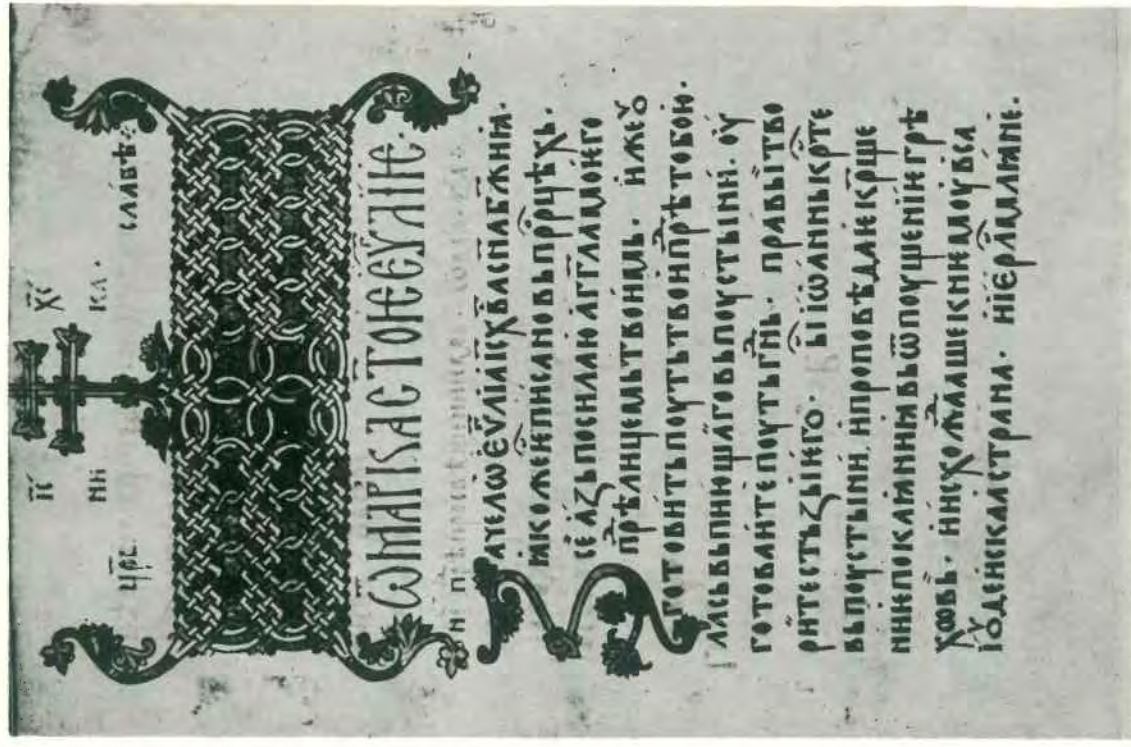 І҃С Х҃С
НИ КА ·
ЦР҃Ь СЛАВѢ ·
ѾМАРКАС҃ТОѤЄѴ҃ЛІѤ ·
ЗАЧЕЛѠЄѴ҃ЛІАІС҃Х҃ВАСН҃АБЖ҃ИꙖ ·
ꙖКОЖЕѤПИСАНОВЬПРⷪ҇РЦѢХЬ ·
СЕАЗЬПОСИЛАЮАГГ҃ЛАМОѤГО
ПРѢⷣЛИЦЕМЬТВОИМЬ · ИЖЕꙊ
ГОТОВИТЬПОУТЬТВОИПРѢⷣТОБОЮ ·
ГЛАСЬВЬПИЮЩАГОВЬПОУСТЫНИ · ОУ
ГОТОВАИТЕПОУТЬГН҃Ь · ПРАВЫТВО
РИТЕСТЬЗЫѤГО · БЫІѠАННЬКРⷭ҇ТЕ
ВЬПОУСТЫНИ, ИПРОПОВѢДАѤКРⷭ҇ЩЕ
НИѤПОКАꙖНИꙖВЬѾПОУЩЕНІѤГРѢ
ХѠВЬ · ИИСХОЖⷣАШЕКЬНѤМОУВСА
ІѸДЕИСКАꙖСТРАНА · ИІЕРⷭ҇ЛМЛꙖНЕ ·